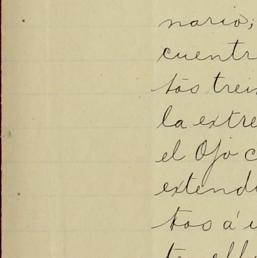 nario;
cuentr
tos trei
la extre
el Ojo c
extend
tos á u